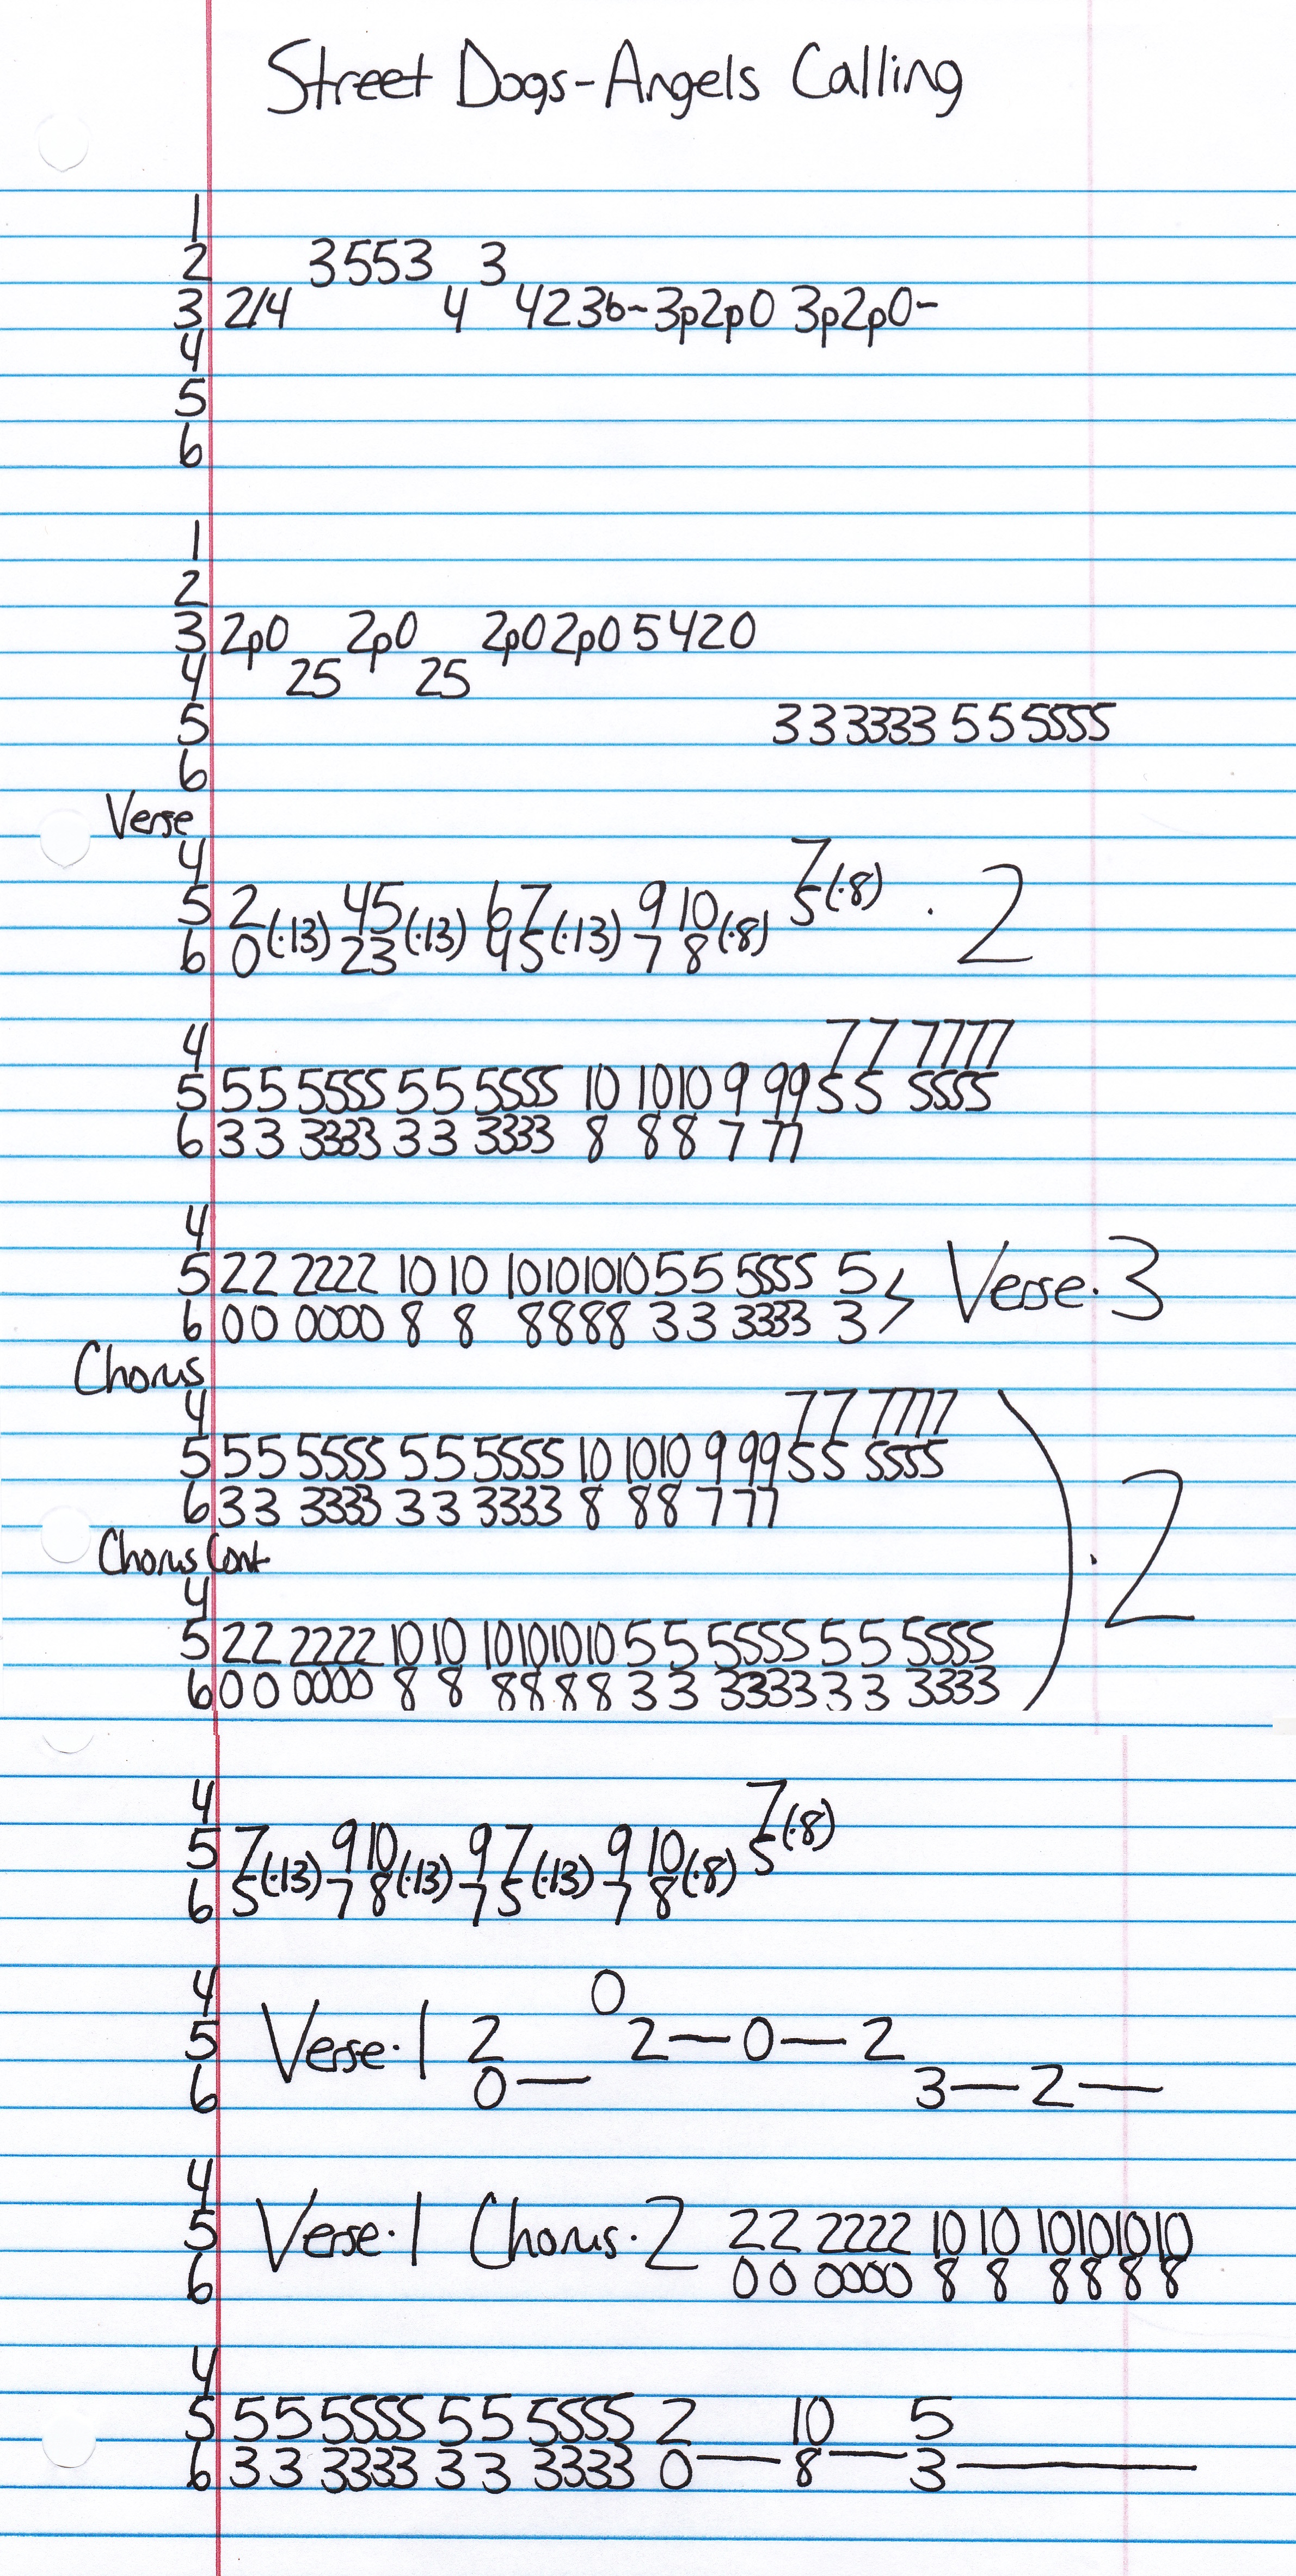 Street Dogs-Angels Calling
1
2 3553 3
3 2/4 4 423b~3p2p0 3p2p0~
4
5
6
1
2
3 2p0 2p0 2p02p05420
4 25 25
5 33333355 5555
6
Verse
4 7
5 2(·13) 45(·13) 67(·13) 9 10(·8) 5(·8) · 2
6 0 23 45 7 8
4 77 7777
5 55 5555 55 5555 10 1010 9 99 55 5555
6 33 3333 33 3333 8 88 7 77
4
5 22 2222 10 10 10101010 55 5555 5 Verse·3
6 00 0000 8 8 8888 33 3333 3
Chorus
4 77 7777
5 55 5555 55 5555 10 1010 9 99 55 5555
6 33 3333 33 3333 8 88 7 77
·2
Chorus Cont
4
5 22 2222 10 10 10101010 55 5555 55 5555
6 00 0000 8 8 8888 33 3333 33 3333
4 7
5 7(·13) 9 10(·13) 97(·13) 9 10(·8) 5(·8)
6 5 7 8 75 7 8
4 0
5 Verse·1 2 2—0—2
6 0— 3—2—
4
5 Verse·1 Chorus·2 22 2222 10 10 10101010
6 00 0000 8 8 8888
4
5 55 5555 55 5555 2 10 5
6 33 3333 33 3333 0—8—3—